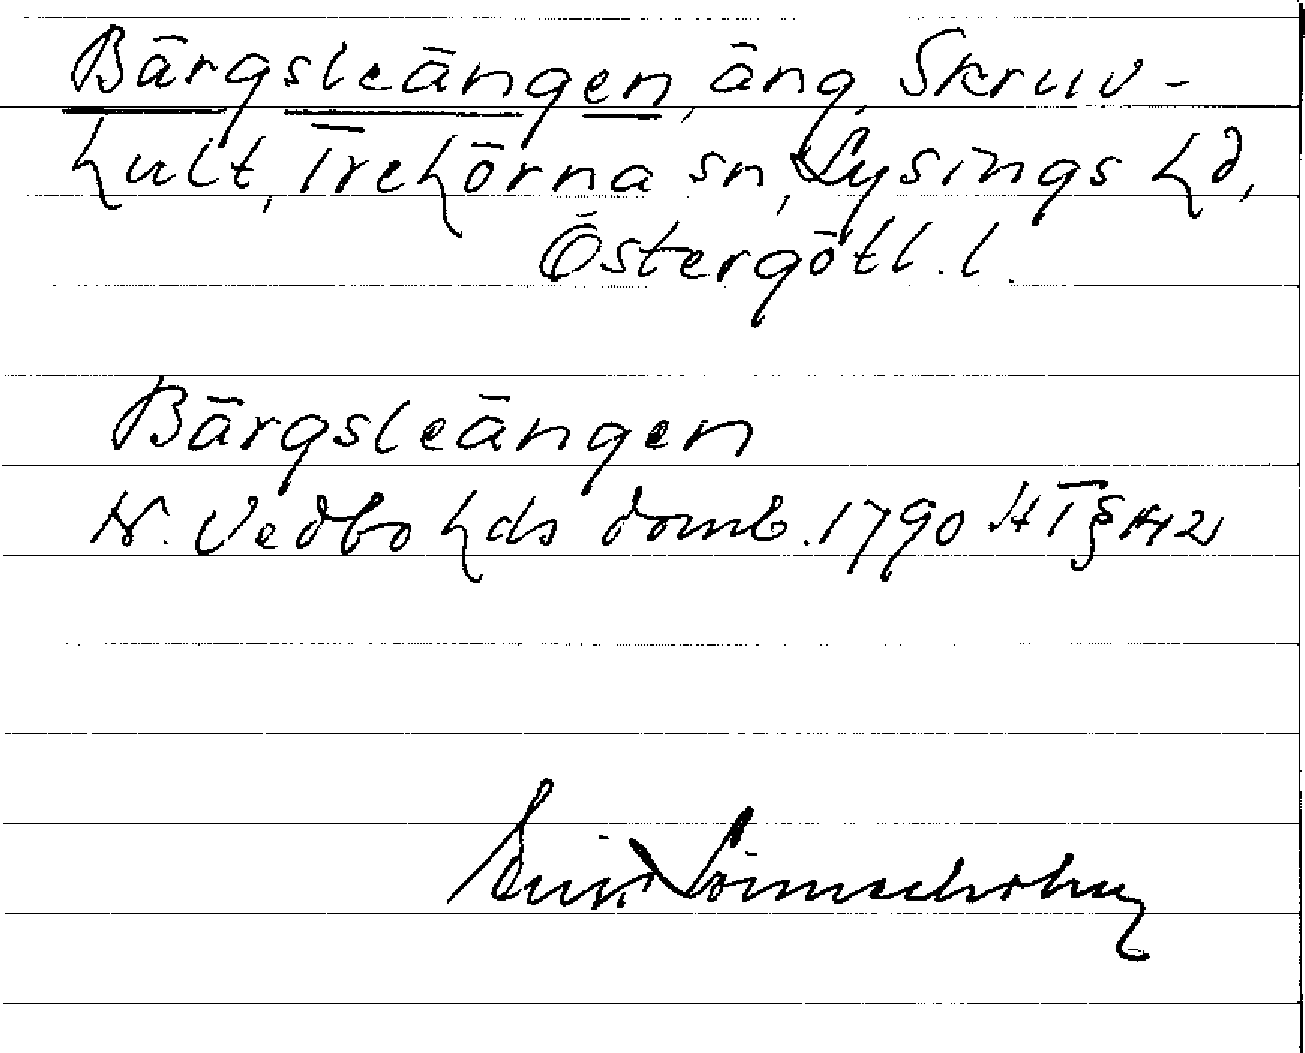 Bärgsleängen, äng, Skruv-
hult, Trehörna sn, Lysings hd,
Östergötl. l.
Bärgsleängen
N. Vedbo hds domb. 1790 HT § 142